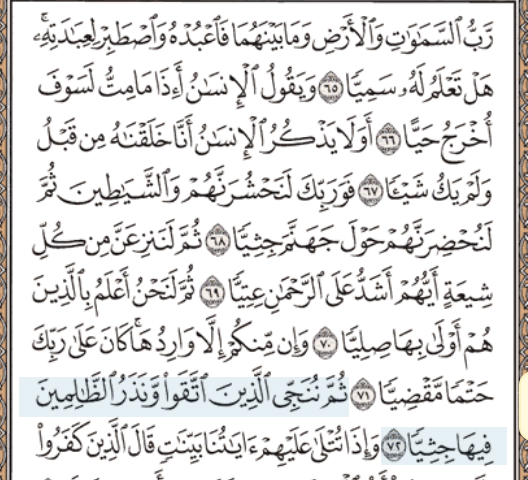 رَّبُّ ٱلسَّمَـٰوَٰتِ وَٱلْأَرْضِ وَمَا بَيْنَهُمَا فَٱعْبُدْهُ وَٱصْطَبِرْ لِعِبَـٰدَتِهِۦۚ
هَلْ تَعْلَمُ لَهُۥ سَمِيًّا ٦٥ وَيَقُولُ ٱلْإِنسَـٰنُ أَءِذَا مَا مِتُّ لَسَوْفَ
أُخْرَجُ حَيًّا ٦٦ أَوَلَا يَذْكُرُ ٱلْإِنسَـٰنُ أَنَّا خَلَقْنَـٰهُ مِن قَبْلُ
وَلَمْ يَكُ شَيْـًٔا ٦٧ فَوَرَبِّكَ لَنَحْشُرَنَّهُمْ وَٱلشَّيَـٰطِينَ ثُمَّ
لَنُحْضِرَنَّهُمْ حَوْلَ جَهَنَّمَ جِثِيًّا ٦٨ ثُمَّ لَنَنزِعَنَّ مِن كُلِّ
شِيعَةٍ أَيُّهُمْ أَشَدُّ عَلَى ٱلرَّحْمَـٰنِ عِتِيًّا ٦٩ ثُمَّ لَنَحْنُ أَعْلَمُ بِٱلَّذِينَ
هُمْ أَوْلَىٰ بِهَا صِلِيًّا ٧٠ وَإِن مِّنكُمْ إِلَّا وَارِدُهَاۚ كَانَ عَلَىٰ رَبِّكَ
حَتْمًا مَّقْضِيًّا ٧١ ثُمَّ نُنَجِّى ٱلَّذِينَ ٱتَّقَوا۟ وَّنَذَرُ ٱلظَّـٰلِمِينَ
فِيهَا جِثِيًّا ٧٢ وَإِذَا تُتْلَىٰ عَلَيْهِمْ ءَايَـٰتُنَا بَيِّنَـٰتٍ قَالَ ٱلَّذِينَ كَفَرُوا۟